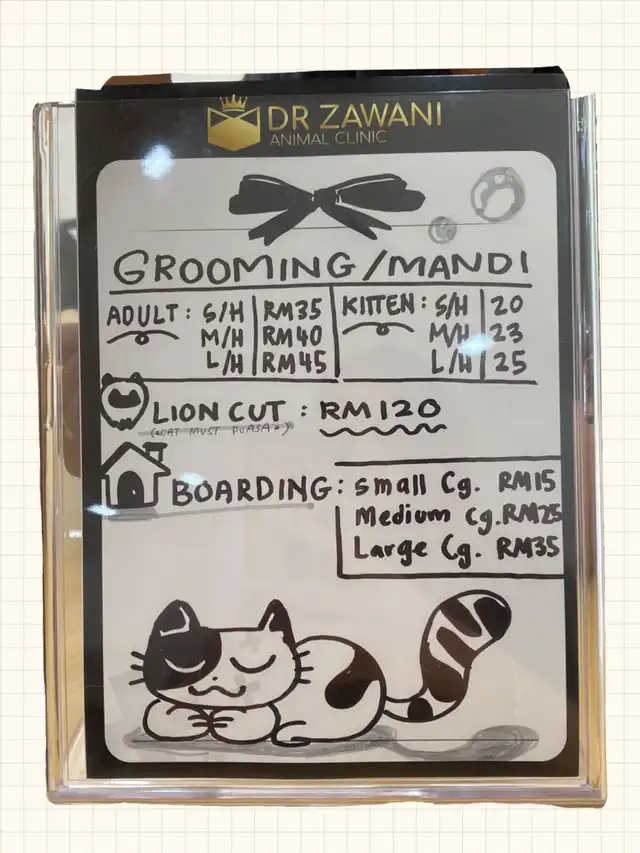 DR ZAWANI
ANIMAL CLINIC
GROOMING/MANDI
ADULT : S/H RM35
M/H RM40
L/H RM45
KITTEN : S/H 20
M/H 23
L/H 25
LION CUT : RM120
(*CAT MUST PUASA*)
BOARDING : Small Cg. RM15
Medium Cg. RM25
Large Cg. RM35